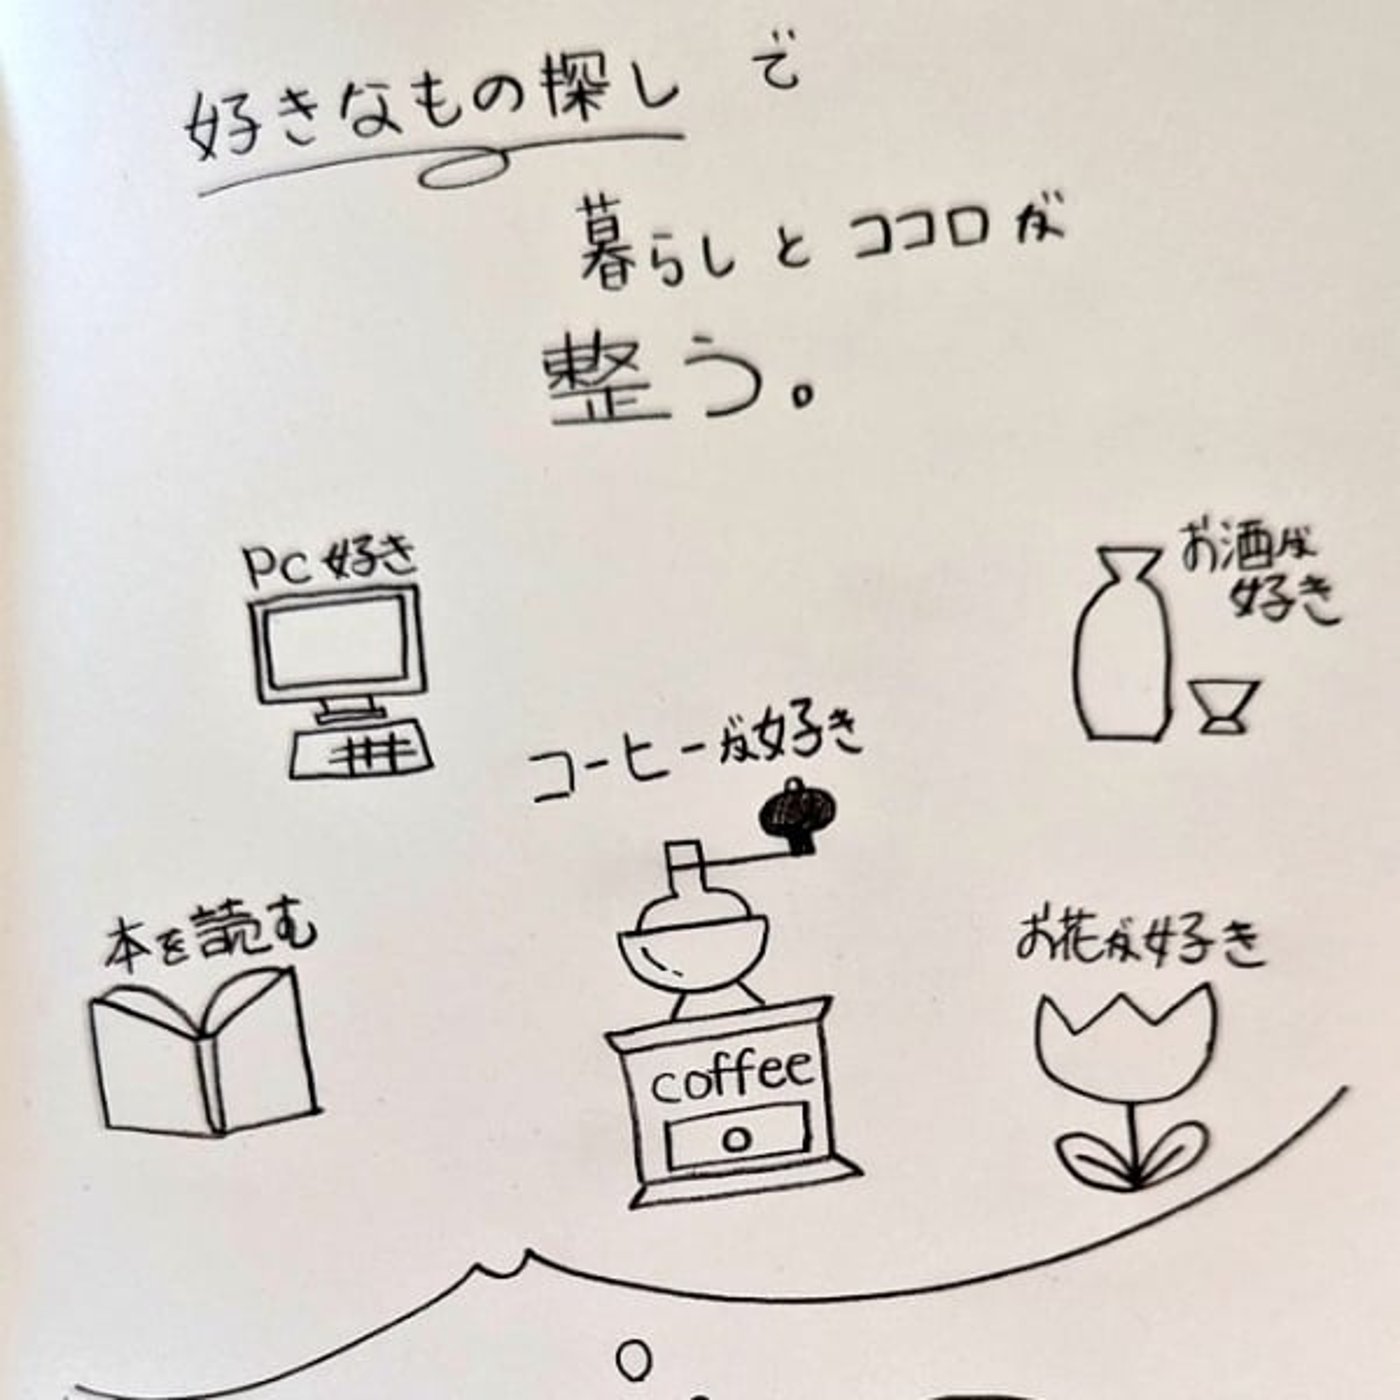 好きなもの探しで
暮らしとココロが
整う。
PC好き
お酒が
好き
コーヒーが好き
本を読む
お花が好き
coffee